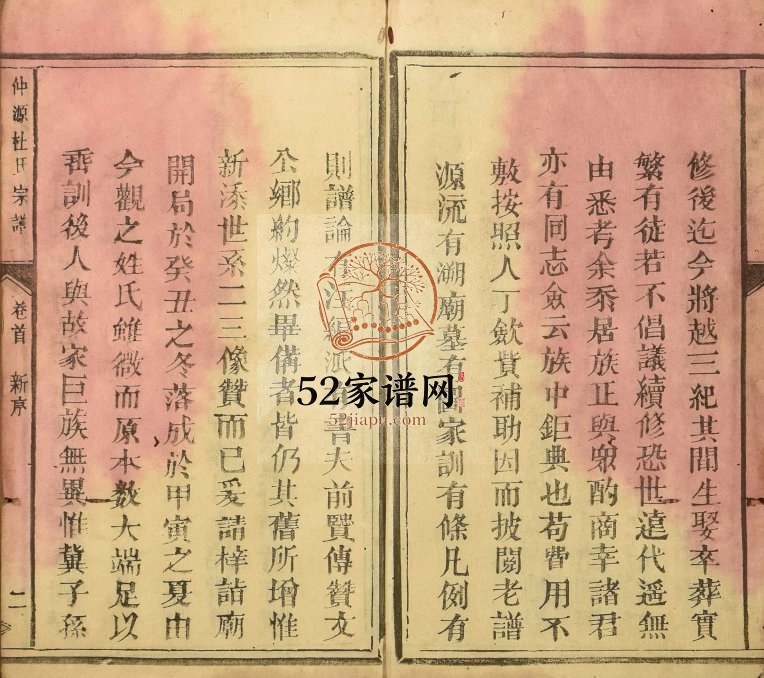 修後迄今將越三紀其間生娶卒葬實
繁有徒若不倡議續修恐世遠代遥無
由悉考余忝居族正與衆酌商幸諸君
亦有同志僉云族中鉅典也苟費用不
敷按照人丁歛貲補助因而披閱老譜
源流有溯廟墓有圖家訓有條凡例有
則譜論有法 派 夫前賢傳贊文
公鄉約燦然畢備者皆仍其舊所增惟
新添世系二三像贊而已爰請梓詣廟
開局於癸丑之冬落成於甲寅之夏由
今觀之姓氏雖微而原本數大端足以
垂訓後人與故家巨族無異惟冀子孫
仲源杜氏宗譜
卷首 新序
二
52家谱网
52jiapu.com